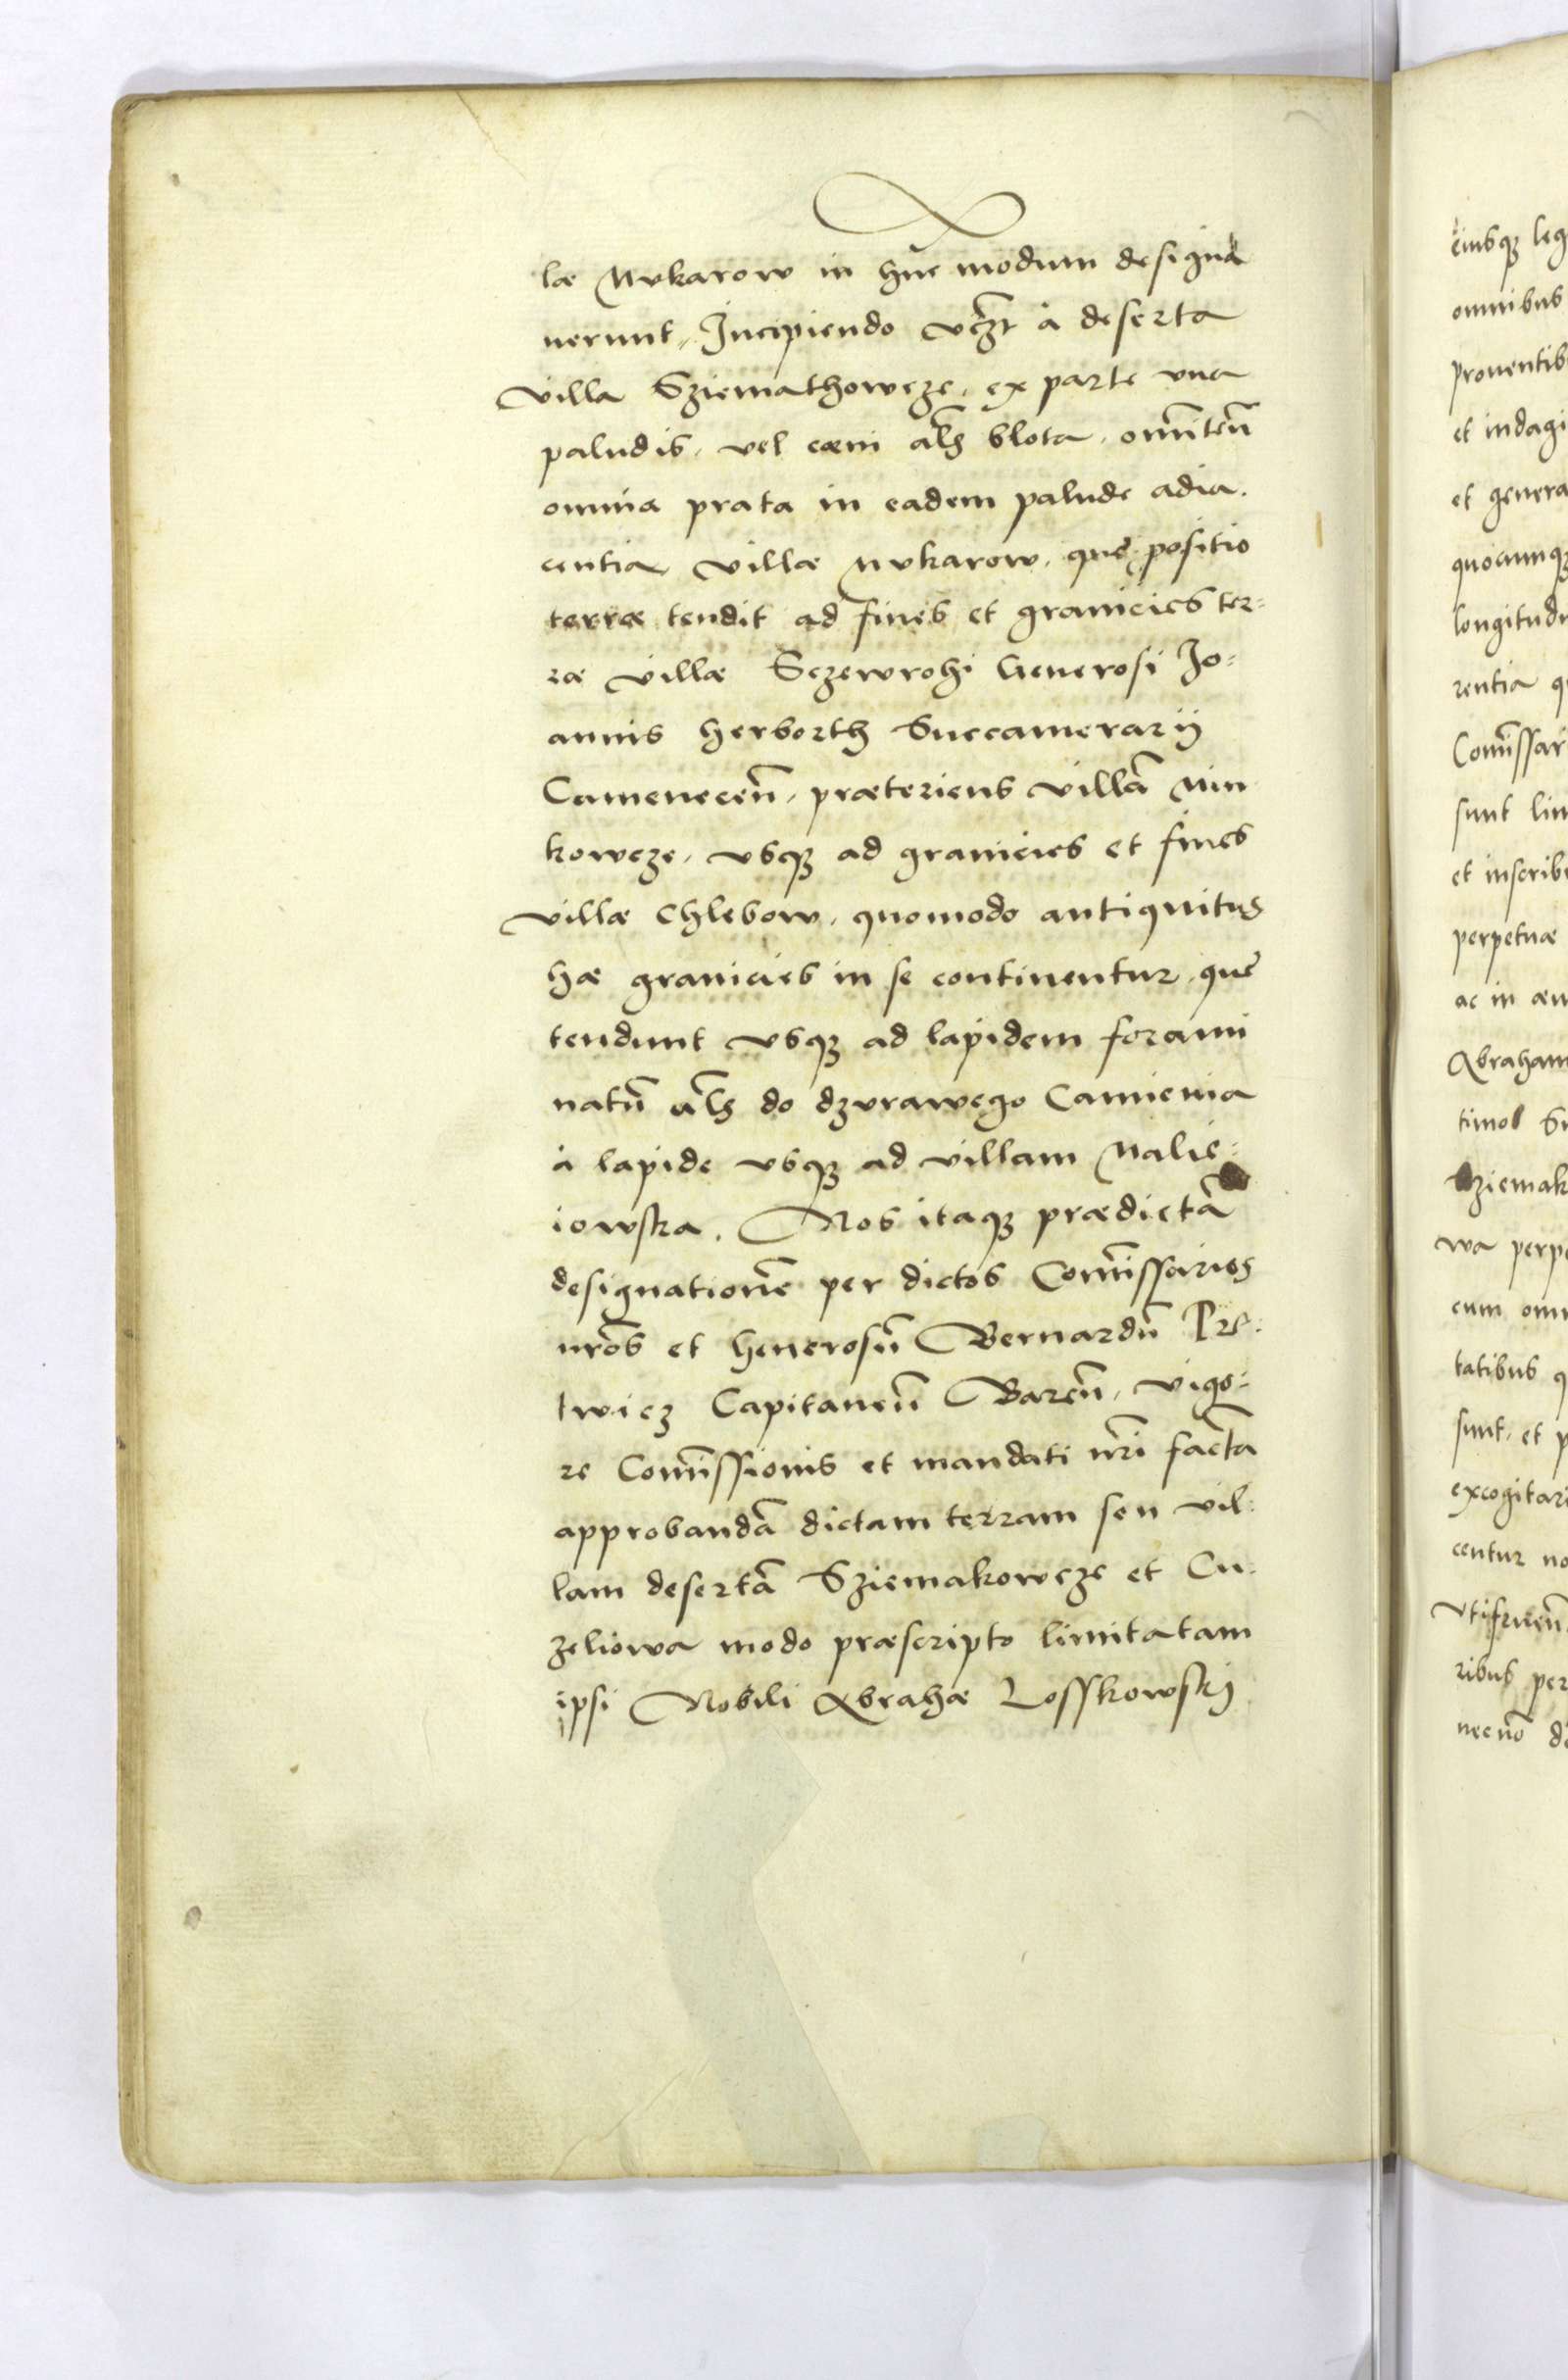 læ Mvkarow in hũc modum designa
uerunt, Incipiendo vcz̃t à deserta
villa Sziemathowcze, ex parte vna
paludis, vel cæni als̃ blota, om̃itteñ
omnia prata in eadem palude adia.
centia villæ Mvkarow, quę positio
terræ tendit ad fines et granicies ter=
ræ villæ Sczewrohi Generosi Jo=
annis Herborth Succamerarij
Cameneceñ, præteriens villã Min
kowcze, vsqʒ ad granicies et fines
villæ Chlebow, quomodo antiquitus
hæ granicies in se continentur, quę
tendunt vsqʒ ad lapidem forami
natũ als̃ do dzvrawego Camienia
à lapide vsqʒ ad villam Malie=
iowska. Nos itaqʒ prædictã
designationẽ per dictos Com̃issarios
nr̃os et Generosũ Bernardũ Pre=
twicz Capitaneũ Bareñ, vigo=
re Com̃issionis et mandati nr̃i factã
approbandã dictam terram seu vil=
lam desertã Sziemakowcze et Cu=
zeliowa modo præscripto limitatam
ipsi Nobili Abrahæ Losskowskij
eiusqʒ
omnibus
et indagi
quocumqʒ
rentia
sunt
perpetuæ
ac in
cum
tatibus
sunt, et
centur
ribus per